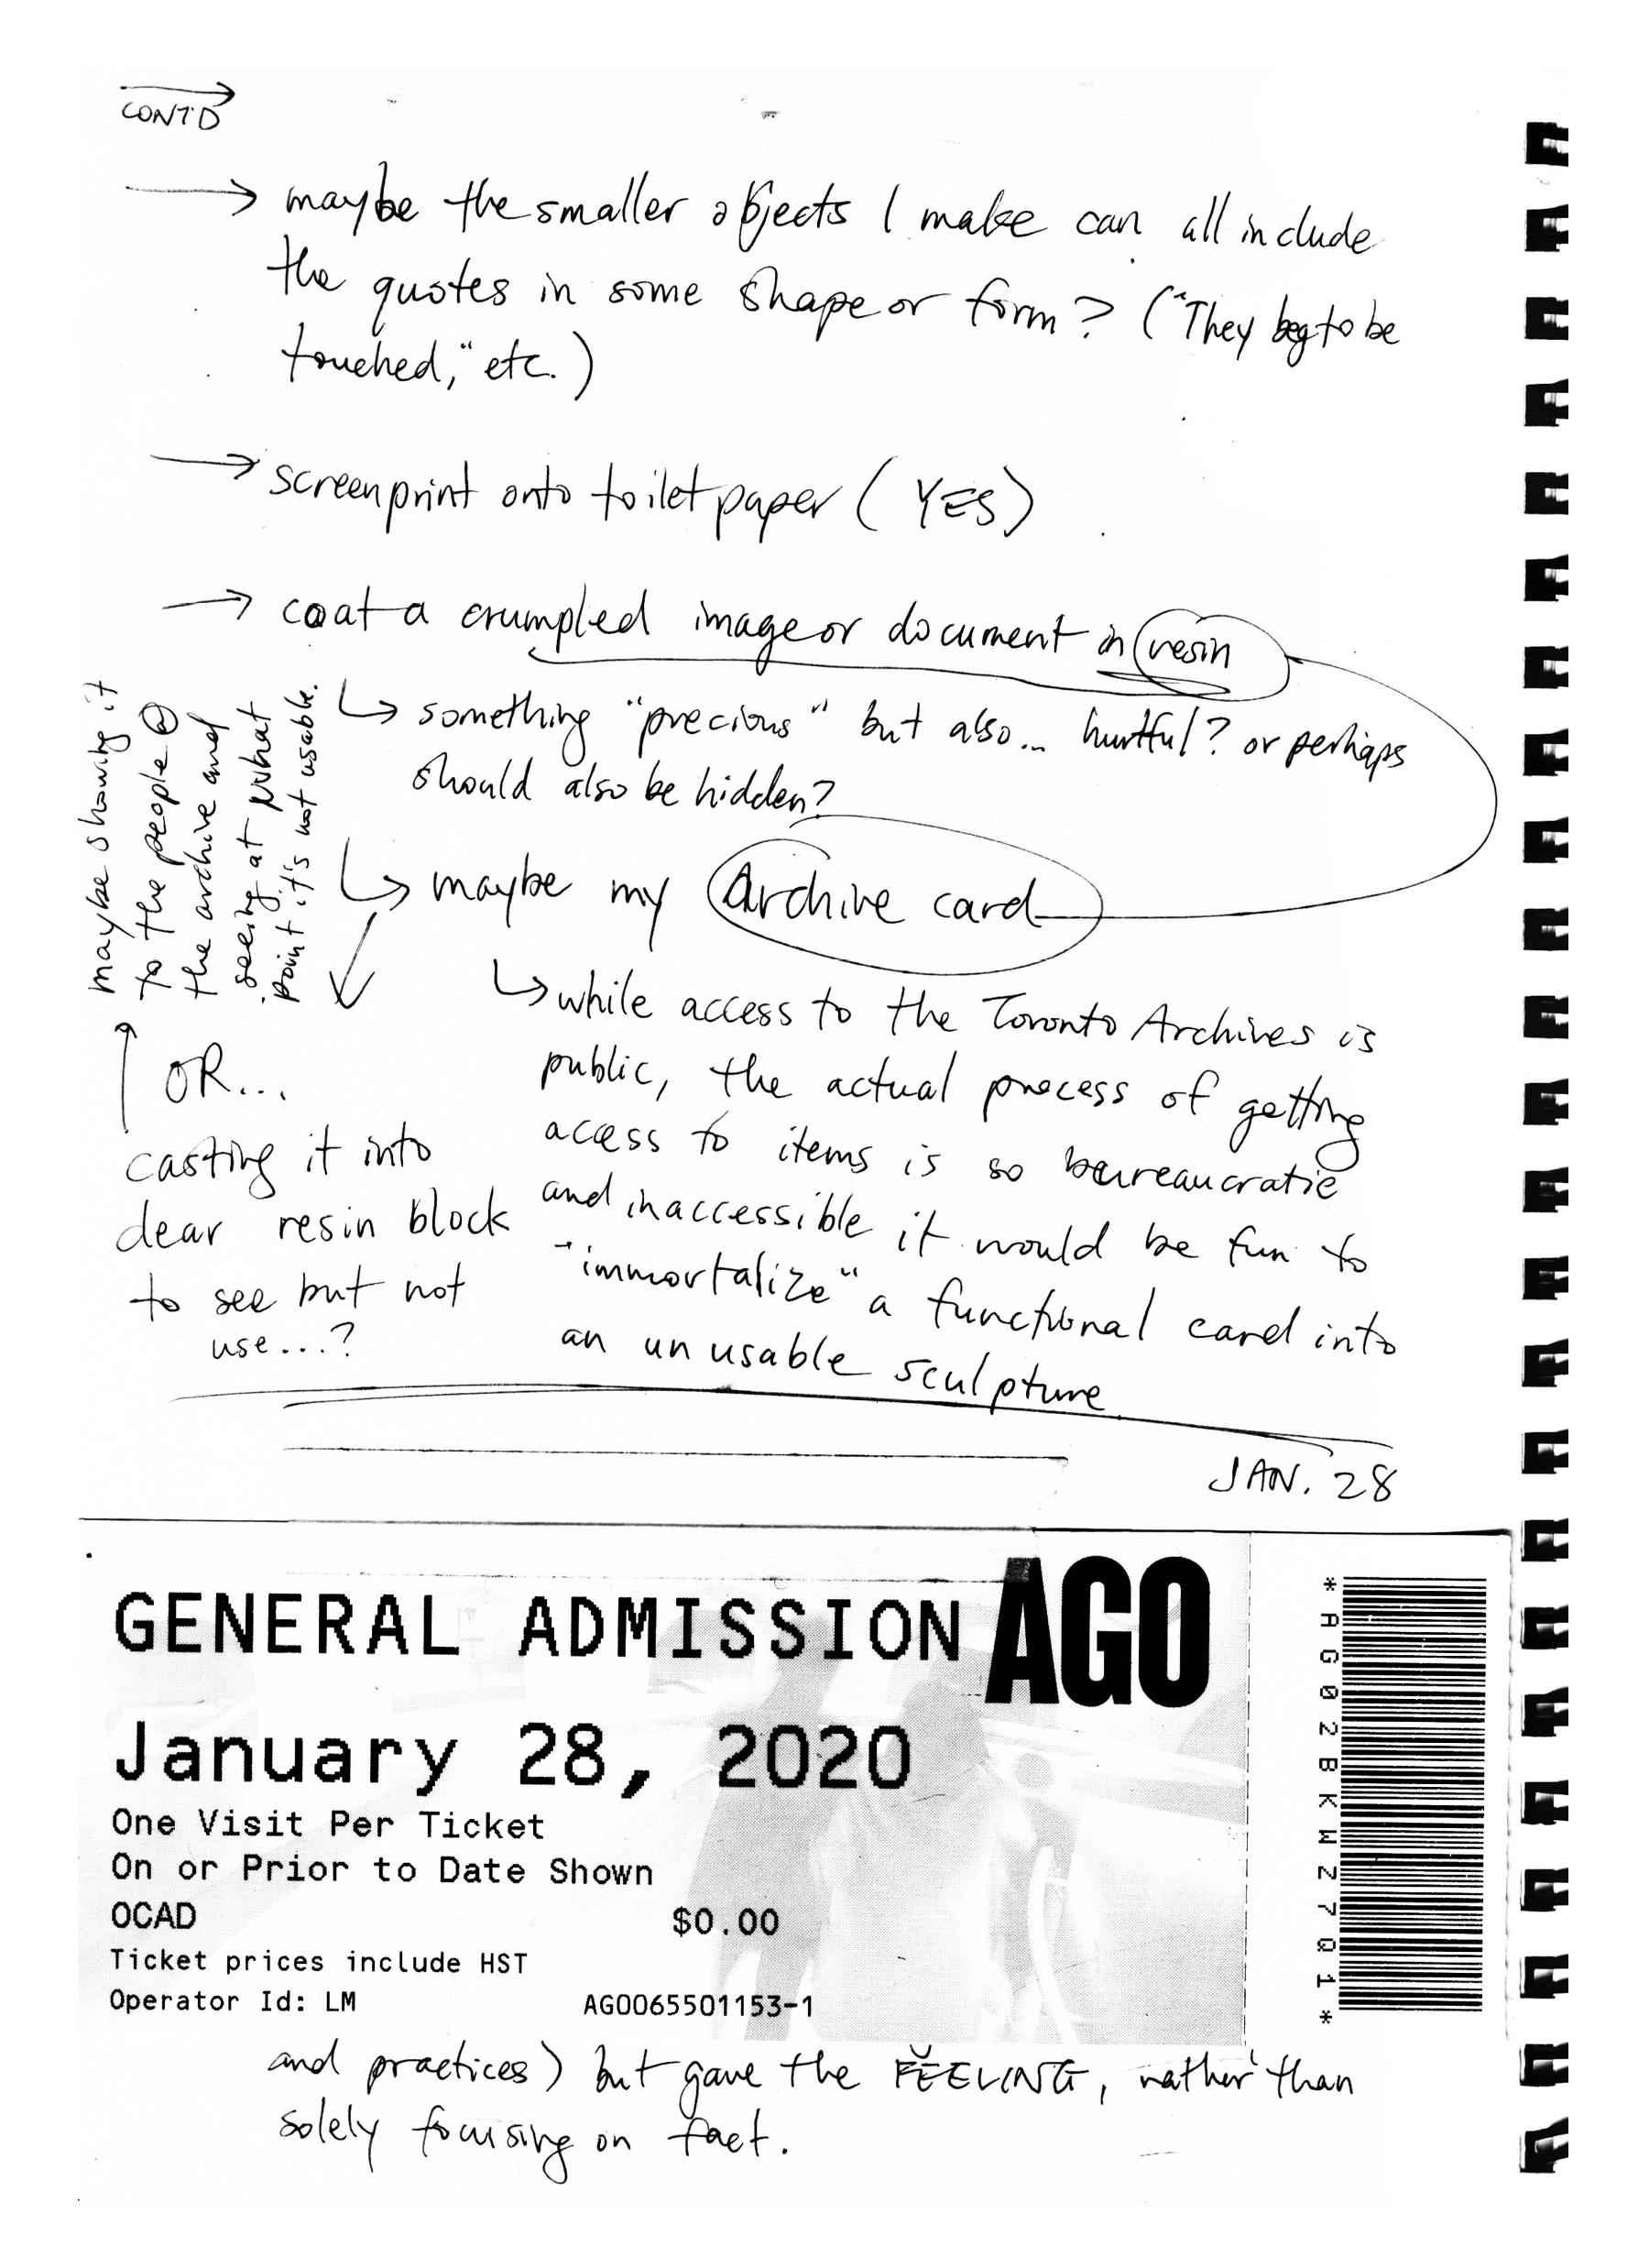 CONT'D
→ maybe the smaller objects I make can all include
the quotes in some shape or form? ("They beg to be
touched," etc.)
→ screenprint onto toilet paper (YES)
→ coat a crumpled image or document in resin
↳ something "precious" but also... hurtful? or perhaps
should also be hidden?
↳ maybe my Archive card
↳ while access to the Toronto Archives is
public, the actual process of getting
access to items is so beureaucratic
and inaccessible it would be fun to
"immortalize" a functional card into
an unusable sculpture
OR...
casting it into
clear resin block
to see but not
use...?
maybe showing it
to the people @
the archive and
seeing at what
point it's not usable.
JAN. 28
GENERAL ADMISSION AGO
January 28, 2020
One Visit Per Ticket
On or Prior to Date Shown
OCAD $0.00
Ticket prices include HST
Operator Id: LM AGO065501153-1
*AG02BKWZ7Q1*
and practices) but gave the FEELING, rather than
solely focusing on fact.